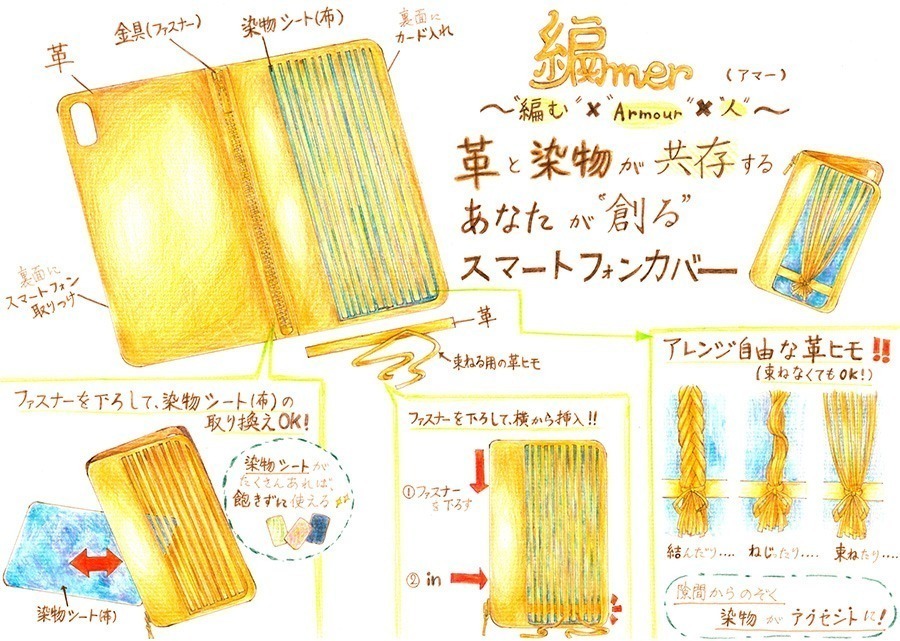 金具(ファスナー)
染物シート(布)
裏面に
カード入れ
革
編mer
(アマー)
～"編む"×"Armour"×"人"～
革と染物が共存する
あなたが"創る"
スマートフォンカバー
裏面に
スマートフォン
取りつけ
革
束ねる用の革ヒモ
ファスナーを下ろして、染物シート(布)の
取り換えOK!
染物シートが
たくさんあれば、
飽きずに使える
染物シート(布)
ファスナーを下ろして、横から挿入!!
①ファスナー
を下ろす
②in
アレンジ自由な革ヒモ!!
(束ねなくてもOK!)
結んだり....
ねじったり....
束ねたり....
隙間からのぞく
染物がアクセントに!